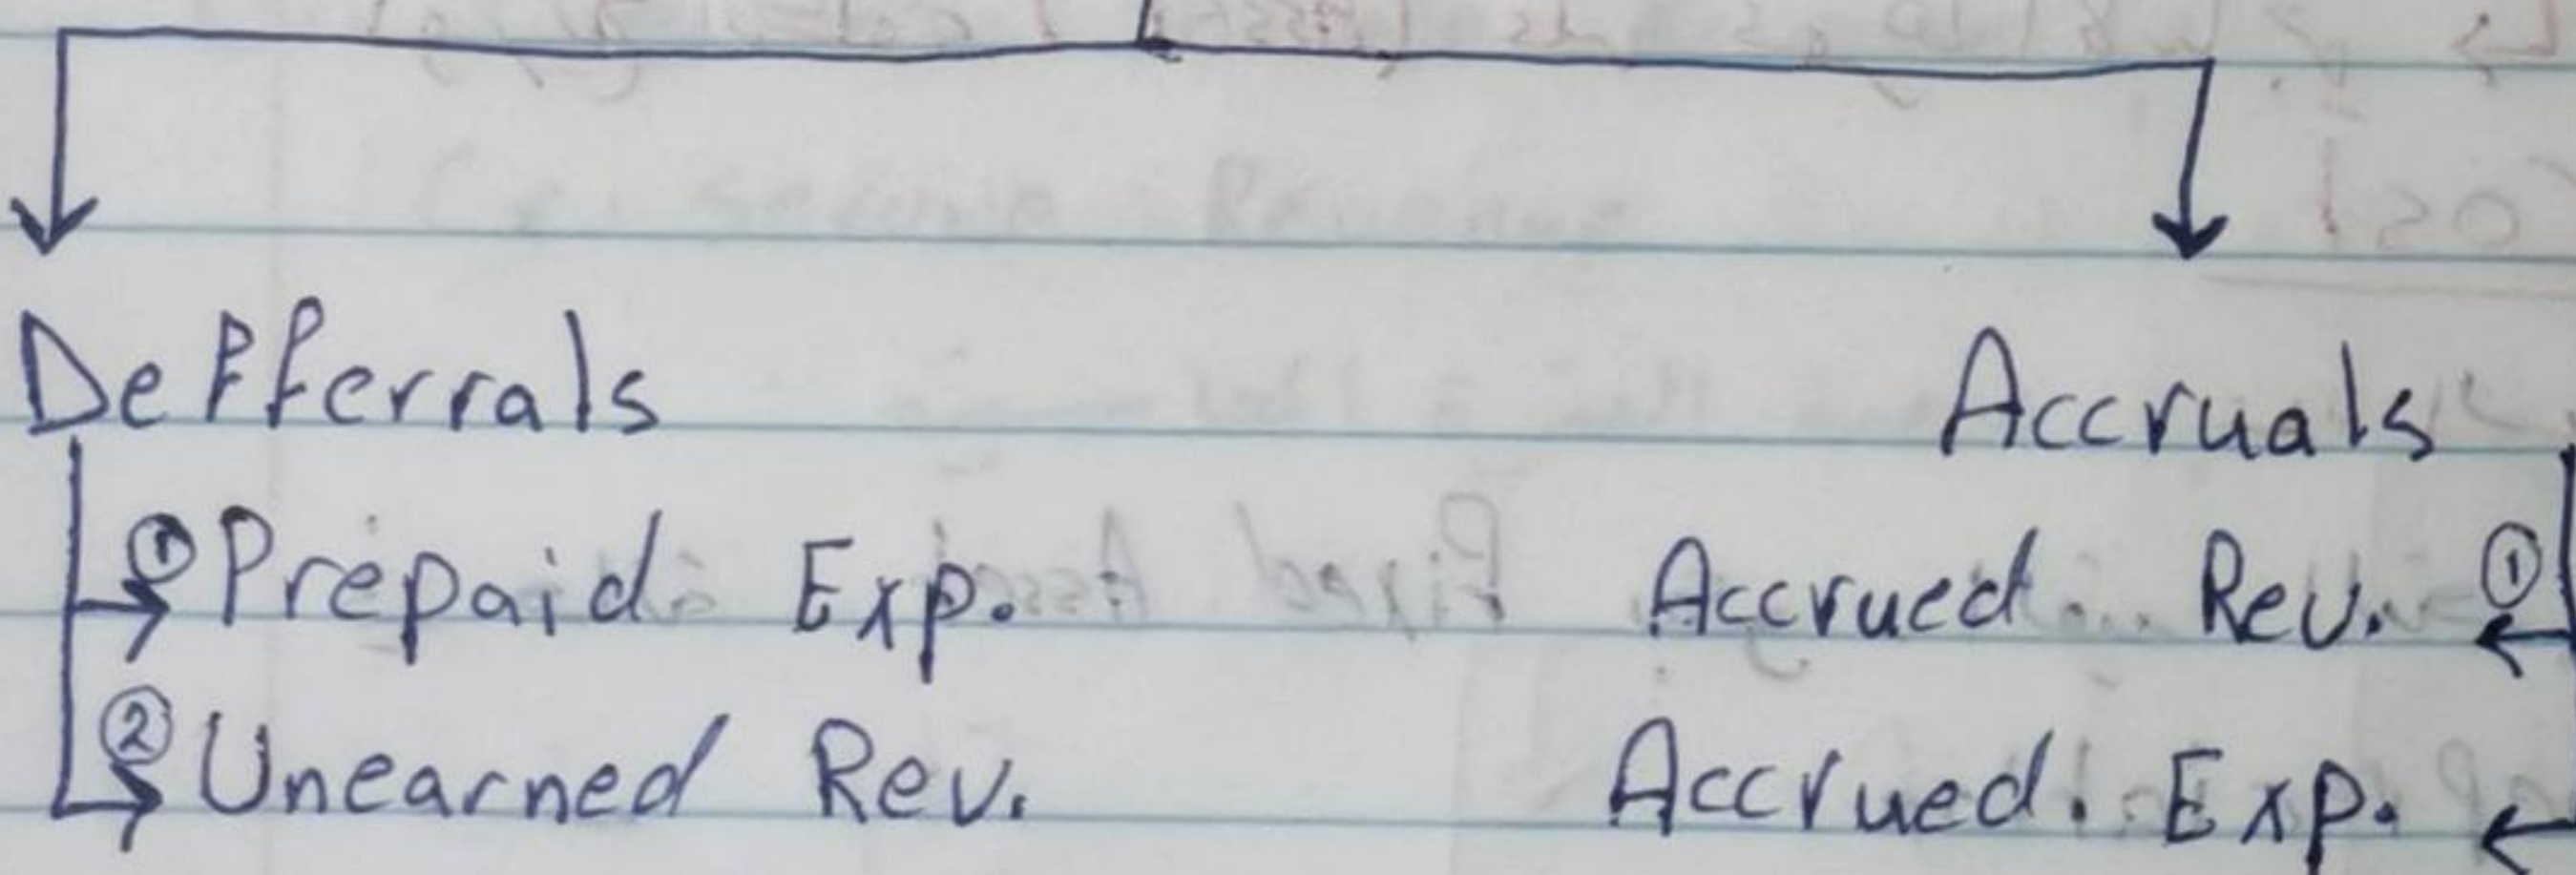 Defferrals
Accruals
① Prepaid Exp.
Accrued Rev. ①
② Unearned Rev.
Accrued. Exp.